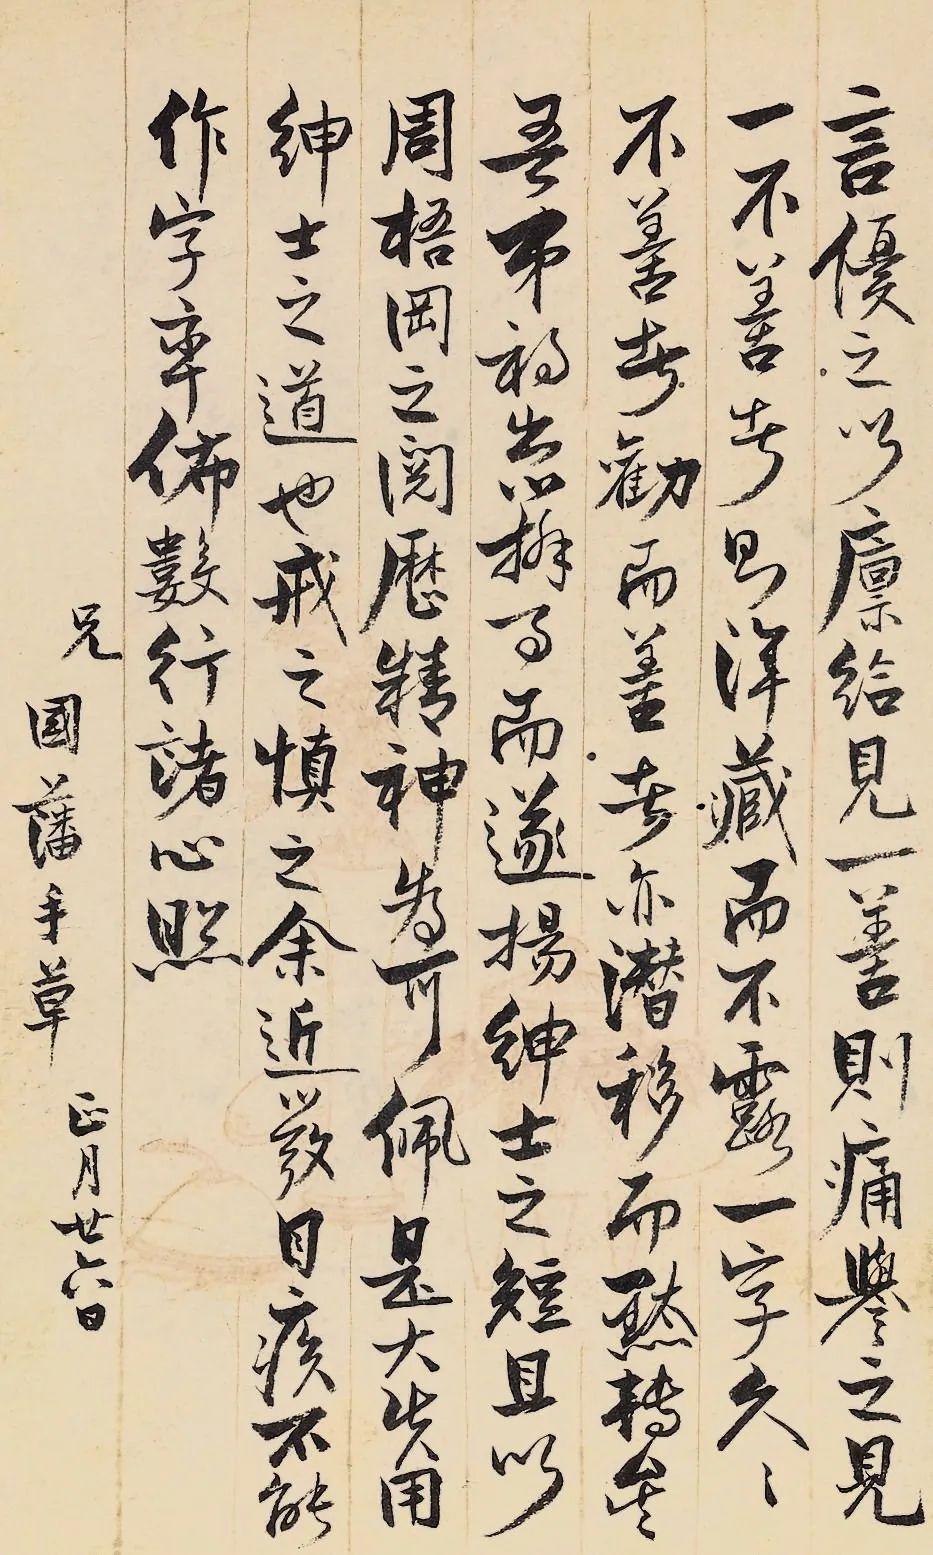 言優之以廩給見一善則痛譽之見
一不善者則渾藏而不露一字久〻
不善者勸而善者亦潛移而黙轉矣
吾弟初出辦事而遂揚紳士之短且以
周梧岡之閱歷精神為可佩是大失用
紳士之道也戒之慎之余近發目疾不能
作字率佈數行諸心照
兄
國藩手草 正月廿六日